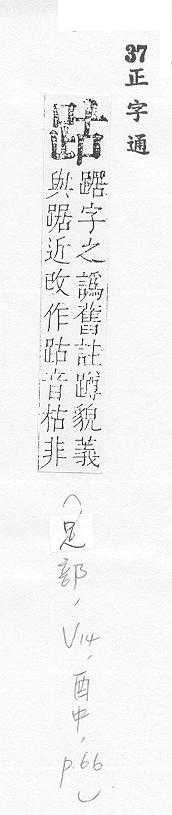 37正字通
跍
踞字之譌舊註蹲貌義
與踞近改作跍音枯非
(足部,V14,酉中,p.66)